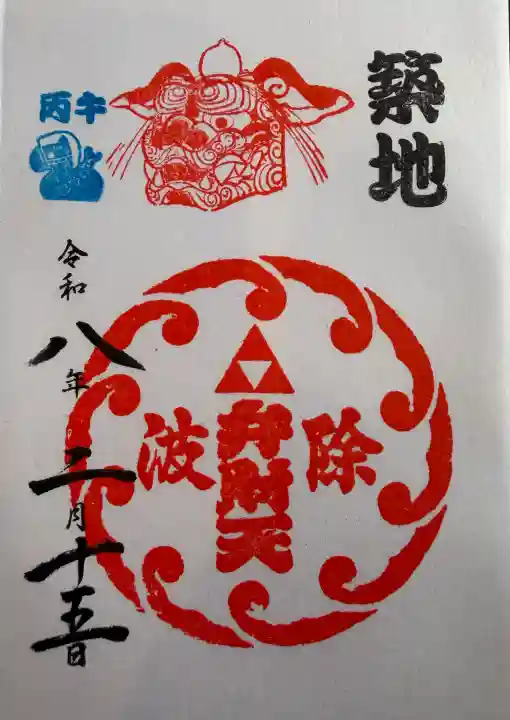 築地
丙午
除
弁財天
波
令和八年二月十五日